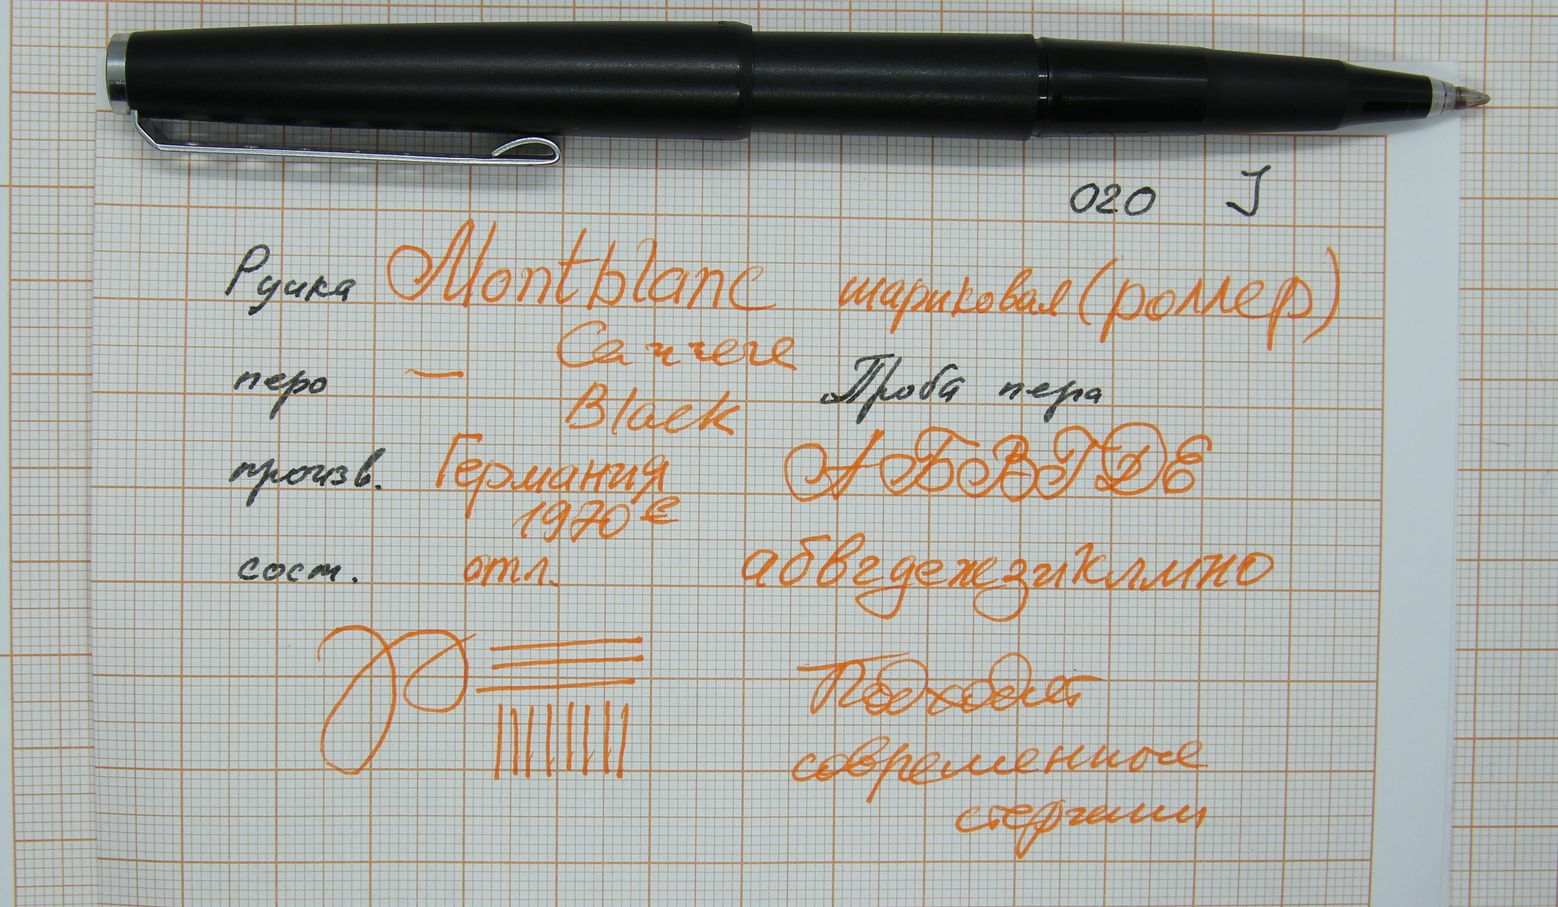 020 J
Ручка Montblanc шариковая (роллер)
Carrera
перо —
Black
Проба пера
произв. Германия
1970е
АБВГДЕ
сост. отл.
абвгдежзиклмно
Подходят
современные
стержни